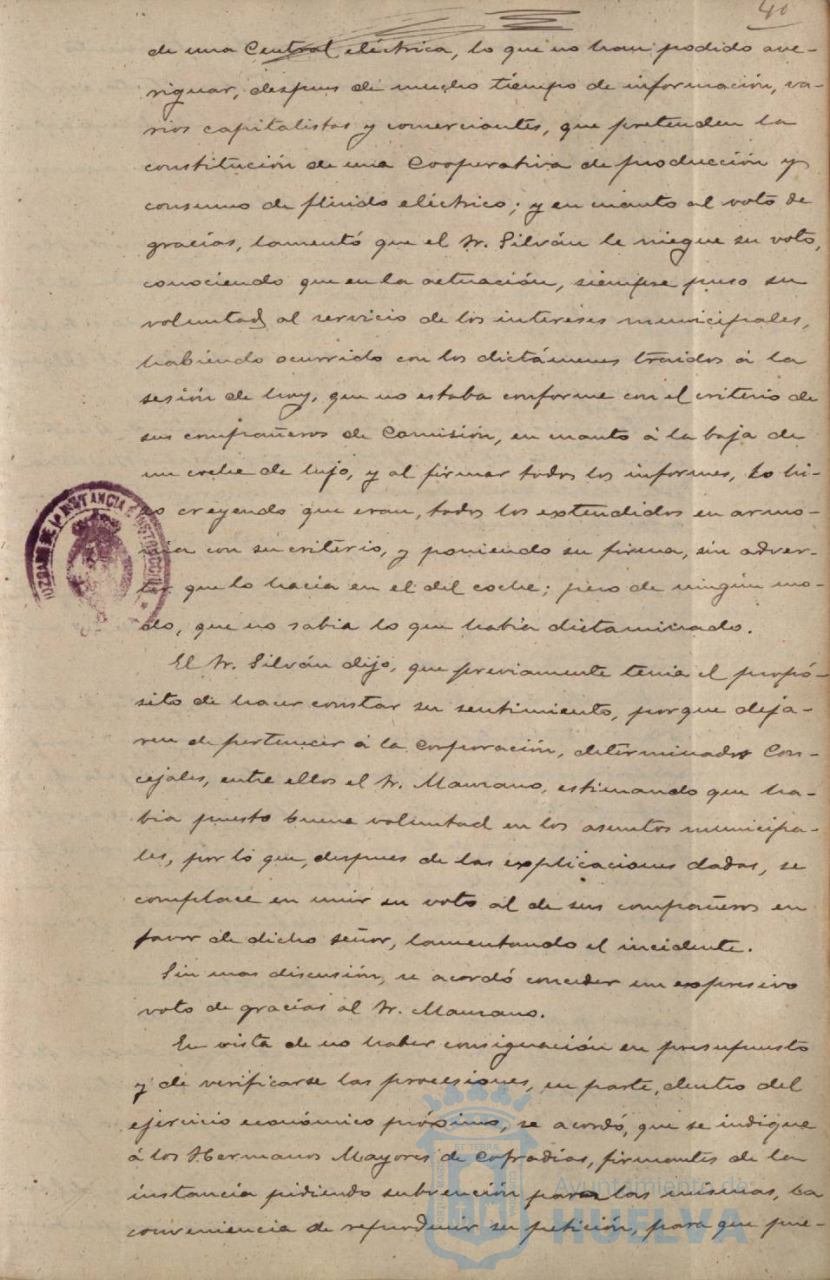 40
de una Central eléctrica, lo que no han podido ave-
riguar, despues de mucho tiempo de información, va-
rios capitalistas y comerciantes, que pretenden la
constitución de una Cooperativa de producción y
consumo de flúido eléctrico; y en cuanto al voto de
gracias, lamentó que el Sr. Silván le niegue su voto,
conociendo que en la actuación, siempre puso su
voluntad, al servicio de los intereses municipales,
habiendo ocurrido con los dictámenes traidos á la
sesión de hoy, que no estaba conforme con el criterio de
sus compañeros de Comisión, en cuanto á la baja de
un coche de lujo, y al firmar todos los informes, lo hi-
zo creyendo que eran, todos los extendidos en armo-
nia con su criterio, y poniendo su firma, sin adver-
tir que lo hacía en el del coche; pero de ningún mo-
do, que no sabia lo que había dictaminado.
El Sr. Silván dijo, que previamente tenia el propó-
sito de hacer constar su sentimiento, porque deja-
ren de pertenecer á la Corporación, determinados Con-
cejales, entre ellos el Sr. Manzano, estimando que ha-
bia puesto buena voluntad en los asuntos municipa-
les, por lo que, despues de las explicaciones dadas, se
complace en unir su voto al de sus compañeros en
favor de dicho señor, lamentando el incidente.
Sin mas discusión, se acordó conceder un expresivo
voto de gracias al Sr. Manzano.
En vista de no haber consignación en presupuesto
y de verificarse las procesiones, en parte, dentro del
ejercicio económico próximo, se acordó, que se indique
á los Hermanos Mayores de Cofradías, firmantes de la
instancia pidiendo subvención para las mismas, la
conveniencia de refundir su petición, para que pue-
JUZGADO DE 1ª INSTANCIA É INSTRUCCIÓN
Ayuntamiento de
HUELVA